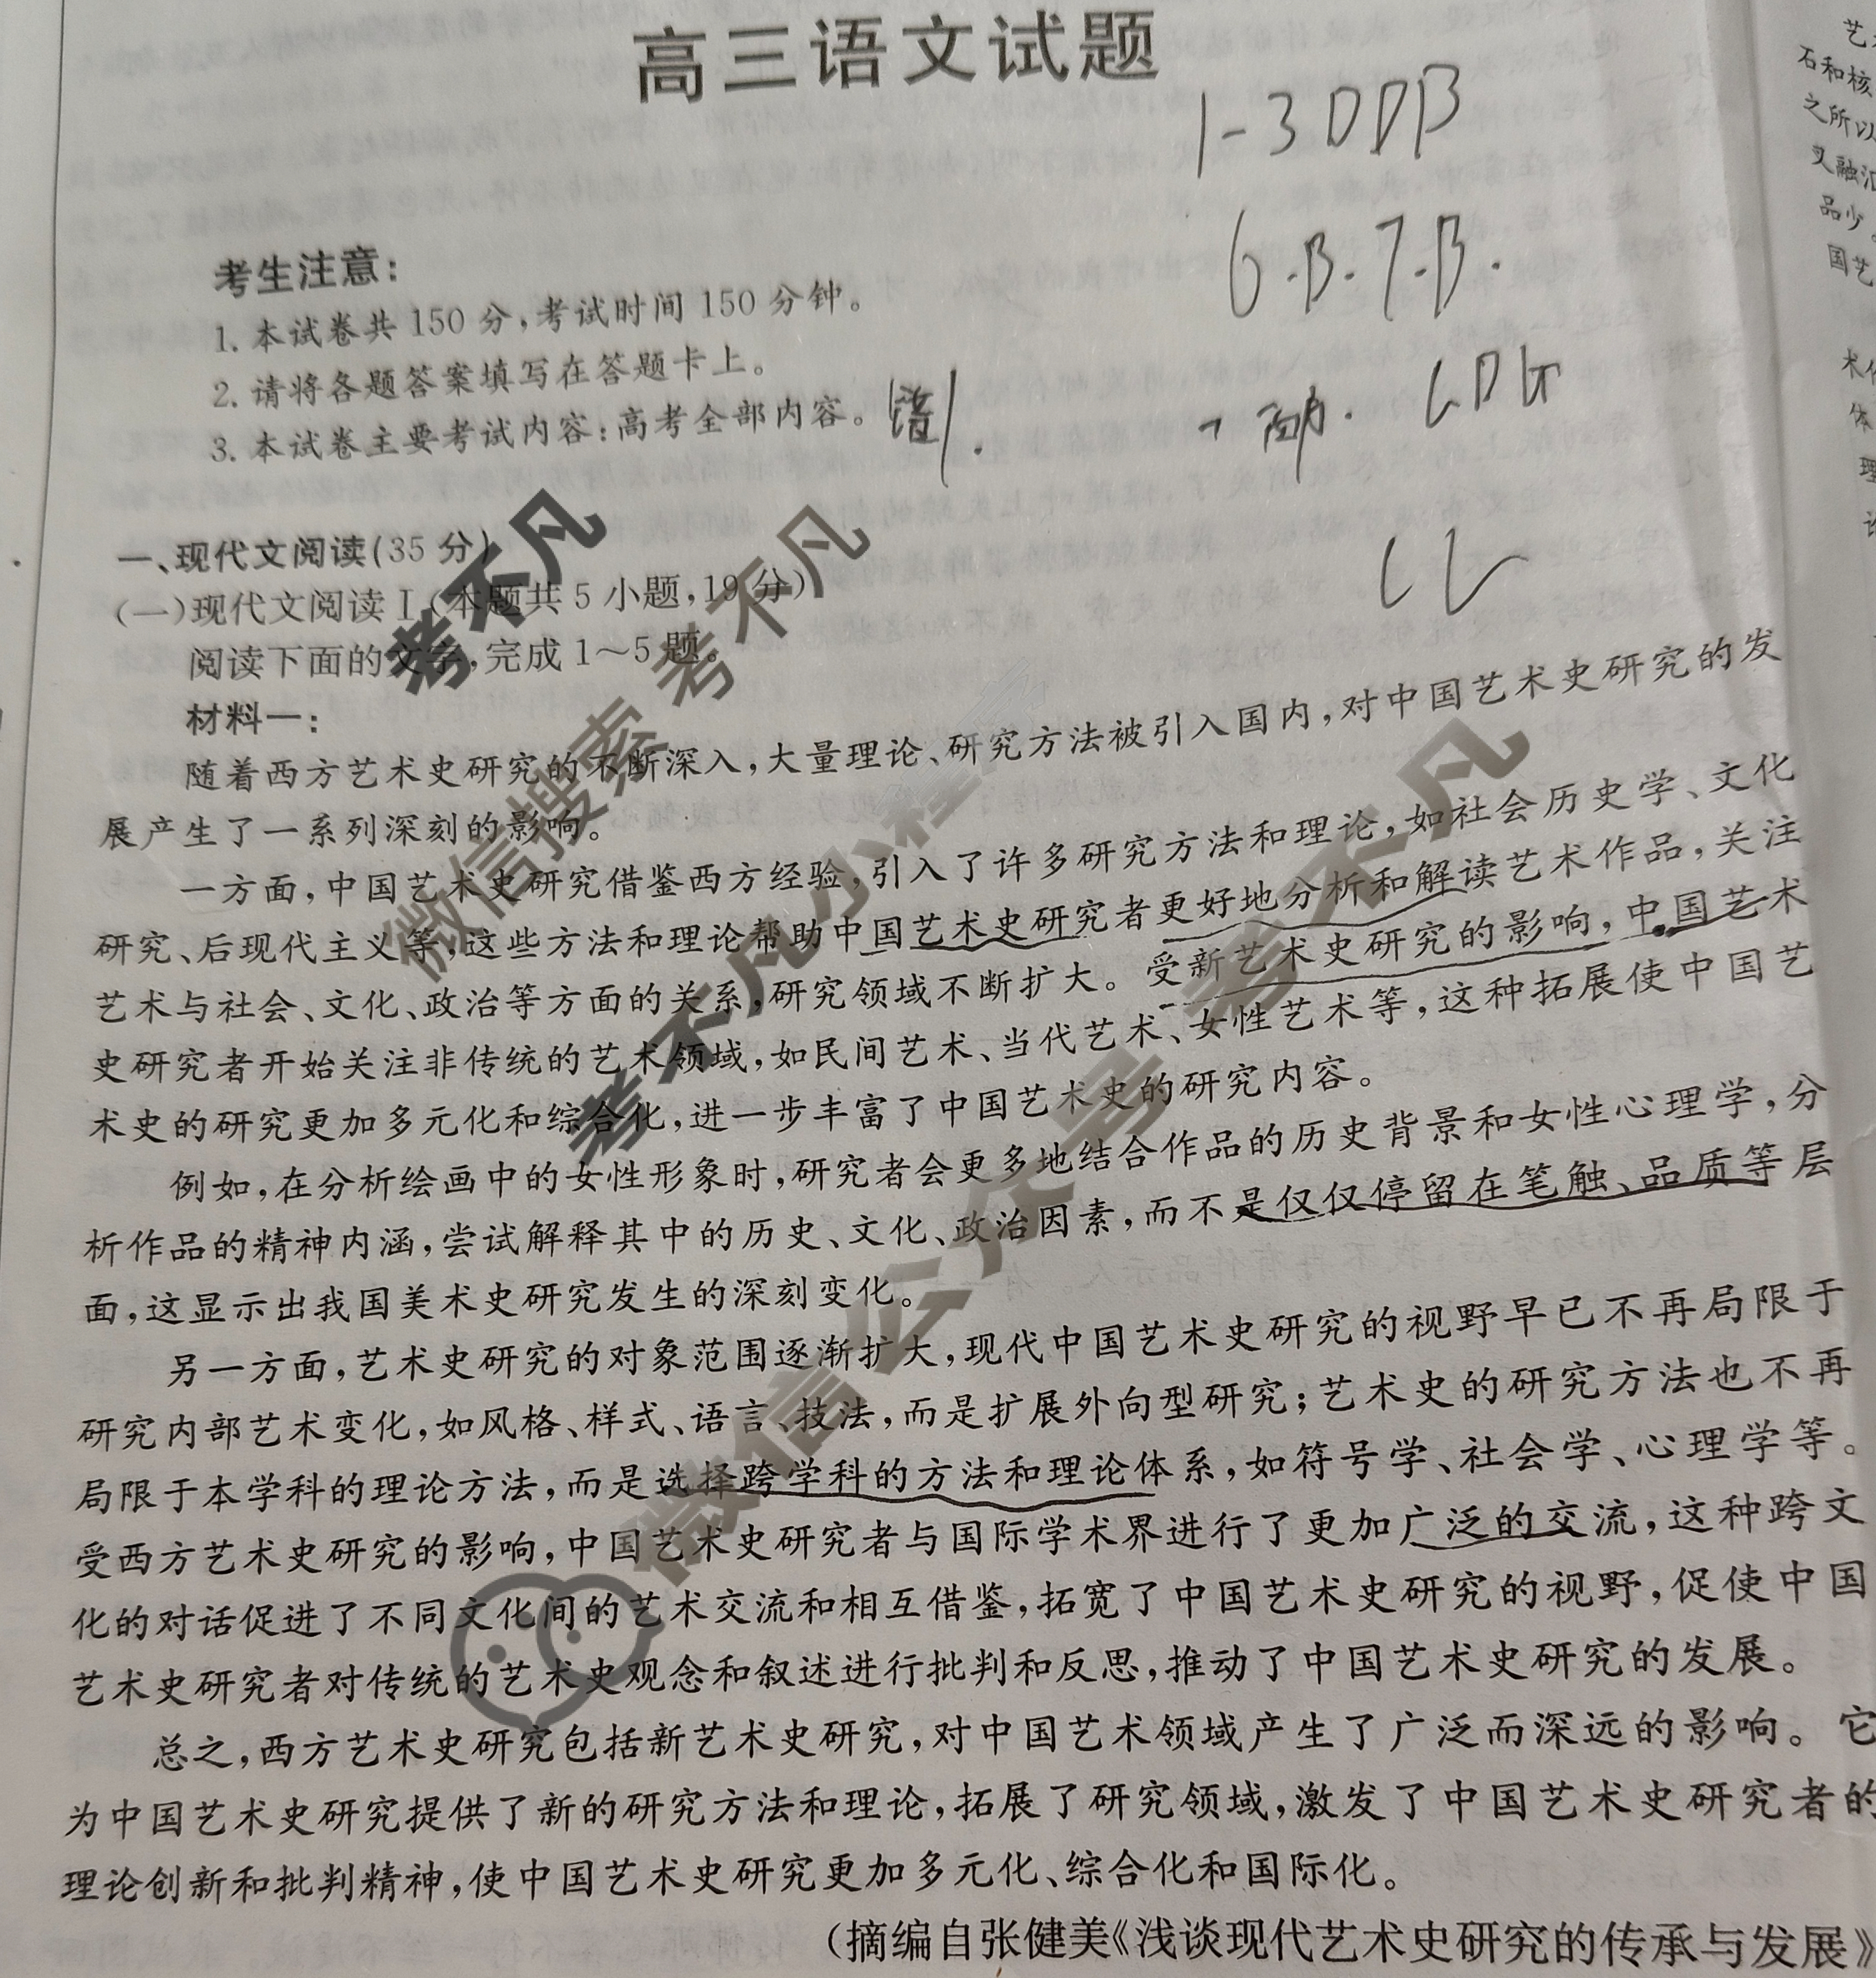 高三语文试题
1-3 DDB
6.B.7.B.
考生注意：
1. 本试卷共 150 分，考试时间 150 分钟。
2. 请将各题答案填写在答题卡上。
3. 本试卷主要考试内容：高考全部内容。
一、现代文阅读(35 分)
(一)现代文阅读Ⅰ(本题共 5 小题，19 分)
阅读下面的文字，完成 1～5 题。
材料一：
随着西方艺术史研究的不断深入，大量理论、研究方法被引入国内，对中国艺术史研究的发
展产生了一系列深刻的影响。
一方面，中国艺术史研究借鉴西方经验，引入了许多研究方法和理论，如社会历史学、文化
研究、后现代主义等，这些方法和理论帮助中国艺术史研究者更好地分析和解读艺术作品，关注
艺术与社会、文化、政治等方面的关系，研究领域不断扩大。受新艺术史研究的影响，中国艺术
史研究者开始关注非传统的艺术领域，如民间艺术、当代艺术、女性艺术等，这种拓展使中国艺
术史的研究更加多元化和综合化，进一步丰富了中国艺术史的研究内容。
例如，在分析绘画中的女性形象时，研究者会更多地结合作品的历史背景和女性心理学，分
析作品的精神内涵，尝试解释其中的历史、文化、政治因素，而不是仅仅停留在笔触、品质等层
面，这显示出我国美术史研究发生的深刻变化。
另一方面，艺术史研究的对象范围逐渐扩大，现代中国艺术史研究的视野早已不再局限于
研究内部艺术变化，如风格、样式、语言、技法，而是扩展外向型研究；艺术史的研究方法也不再
局限于本学科的理论方法，而是选择跨学科的方法和理论体系，如符号学、社会学、心理学等。
受西方艺术史研究的影响，中国艺术史研究者与国际学术界进行了更加广泛的交流，这种跨文
化的对话促进了不同文化间的艺术交流和相互借鉴，拓宽了中国艺术史研究的视野，促使中国
艺术史研究者对传统的艺术史观念和叙述进行批判和反思，推动了中国艺术史研究的发展。
总之，西方艺术史研究包括新艺术史研究，对中国艺术领域产生了广泛而深远的影响。它
为中国艺术史研究提供了新的研究方法和理论，拓展了研究领域，激发了中国艺术史研究者的
理论创新和批判精神，使中国艺术史研究更加多元化、综合化和国际化。
(摘编自张健美《浅谈现代艺术史研究的传承与发展》
考不凡
微信搜索 考不凡
考不凡小程
微信公众号 考不凡
石和核
之所以
又融汇
品少
国艺